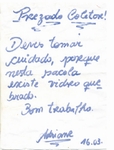 Prezado Coletor!
Dever tomar
cuidado, porque
nesta sacola
existe vidros que
brado.
Bom trabalho.
Adriana
16.03.